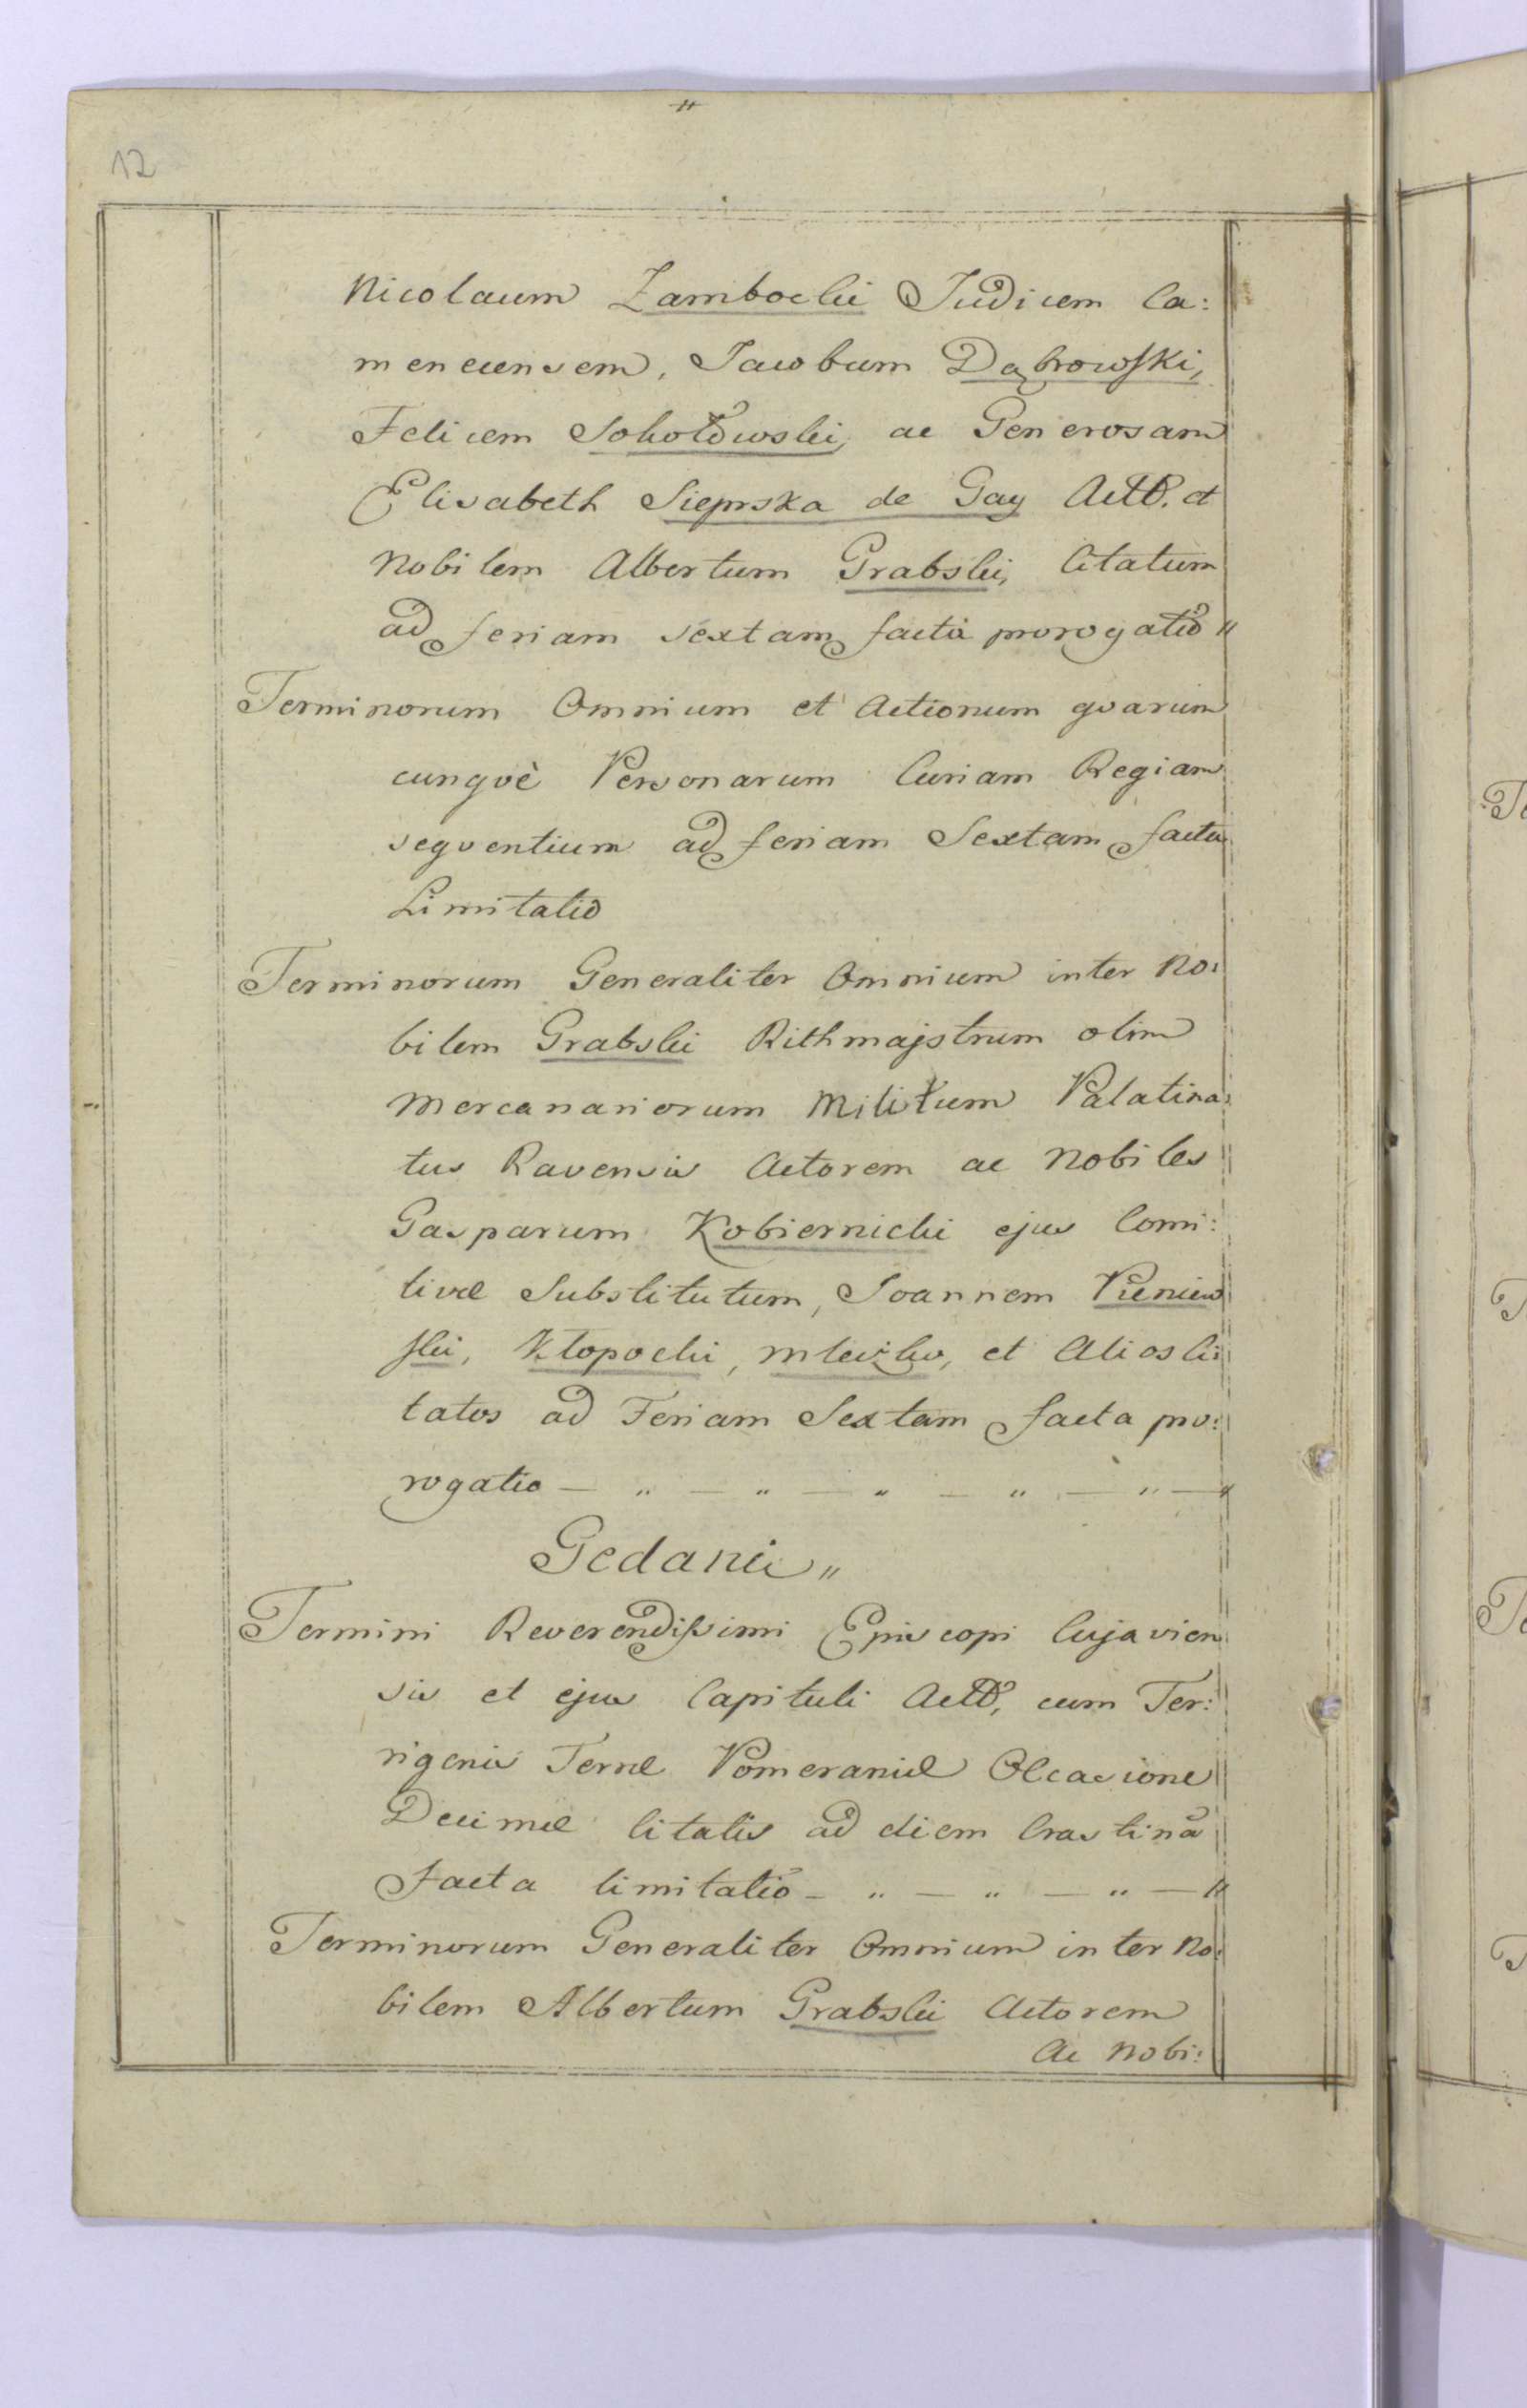 12
Nicolaum Zambocki Judicem Ca:
mencensem, Jacobum Dąbrowski,
Felicem Sokołowski, ac Generosam
Elisabeth Sieprska de Gay Actt. et
Nobilem Albertum Grabski, Citatum
ad feriam sextam facta prorogatio "
Terminorum Omnium et Actionum qvarum
cunqvè Personarum Curiam Regiam
seqventium ad feriam Sextam facta
Limitatio
Terminorum Generaliter Omnium inter No:
bilem Grabski Rithmajstrum olim
Mercanariorum Militum Palatina:
tus Ravensis Actorem ac Nobiles
Gasparum Kobiernicki ejus Comi:
tivæ Substitutum, Joannem Pieniew
ski, Kłopocki, et Alios Ci:
tatos ad Feriam Sextam facta pro:
rogatio — " — " — " — " — " —
Gedani "
Termini Reverendissimi Episcopi Cujavien
sis et ejus Capituli Actt, cum Ter:
rigenis Terræ Pomeraniæ Occasione
Decimæ Citatis ad diem Crastinã
Facta limitatio — " — " — " — "
Terminorum Generaliter Omnium inter No:
bilem Albertum Grabski Actorem
Ac Nobi: